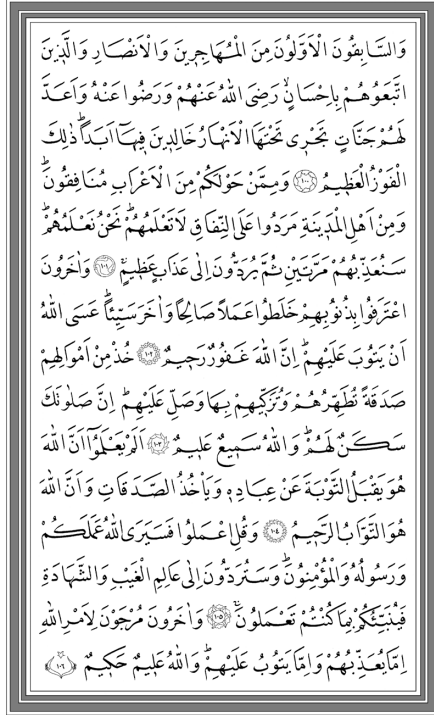 وَالسَّابِقُونَ الْاَوَّلُونَ مِنَ الْمُهَاجِرِينَ وَالْاَنْصَارِ وَالَّذِينَ
اتَّبَعُوهُمْ بِاِحْسَانٍۙ رَضِىَ اللّٰهُ عَنْهُمْ وَرَضُوا عَنْهُ وَاَعَدَّ
لَهُمْ جَنَّاتٍ تَجْرٖى تَحْتَهَا الْاَنْهَارُ خَالِدٖينَ فٖيهَٓا اَبَدًاۜ ذٰلِكَ
الْفَوْزُ الْعَظٖيمُ ﴿١٠٠﴾ وَمِمَّنْ حَوْلَكُمْ مِنَ الْاَعْرَابِ مُنَافِقُونَۜ
وَمِنْ اَهْلِ الْمَدٖينَةِ مَرَدُوا عَلَى النِّفَاقِ لَا تَعْلَمُهُمْۜ نَحْنُ نَعْلَمُهُمْۜ
سَنُعَذِّبُهُمْ مَرَّتَيْنِ ثُمَّ يُرَدُّونَ اِلٰى عَذَابٍ عَظٖيمٍۚ ﴿١٠١﴾ وَاٰخَرُونَ
اعْتَرَفُوا بِذُنُوبِهِمْ خَلَطُوا عَمَلًا صَالِحًا وَاٰخَرَ سَيِّئًاۜ عَسَى اللّٰهُ
اَنْ يَتُوبَ عَلَيْهِمْۜ اِنَّ اللّٰهَ غَفُورٌ رَحٖيمٌ ﴿١٠٢﴾ خُذْ مِنْ اَمْوَالِهِمْ
صَدَقَةً تُطَهِّرُهُمْ وَتُزَكّٖيهِمْ بِهَا وَصَلِّ عَلَيْهِمْۜ اِنَّ صَلٰوتَكَ
سَكَنٌ لَهُمْۜ وَاللّٰهُ سَمٖيعٌ عَلٖيمٌ ﴿١٠٣﴾ اَلَمْ يَعْلَمُٓوا اَنَّ اللّٰهَ
هُوَ يَقْبَلُ التَّوْبَةَ عَنْ عِبَادِهٖ وَيَاْخُذُ الصَّدَقَاتِ وَاَنَّ اللّٰهَ
هُوَ التَّوَّابُ الرَّحٖيمُ ﴿١٠٤﴾ وَقُلِ اعْمَلُوا فَسَيَرَى اللّٰهُ عَمَلَكُمْ
وَرَسُولُهُ وَالْمُؤْمِنُونَۜ وَسَتُرَدُّونَ اِلٰى عَالِمِ الْغَيْبِ وَالشَّهَادَةِ
فَيُنَبِّئُكُمْ بِمَا كُنْتُمْ تَعْمَلُونَۚ ﴿١٠٥﴾ وَاٰخَرُونَ مُرْجَوْنَ لِاَمْرِ اللّٰهِ
اِمَّا يُعَذِّبُهُمْ وَاِمَّا يَتُوبُ عَلَيْهِمْۜ وَاللّٰهُ عَلٖيمٌ حَكٖيمٌ ﴿١٠٦﴾